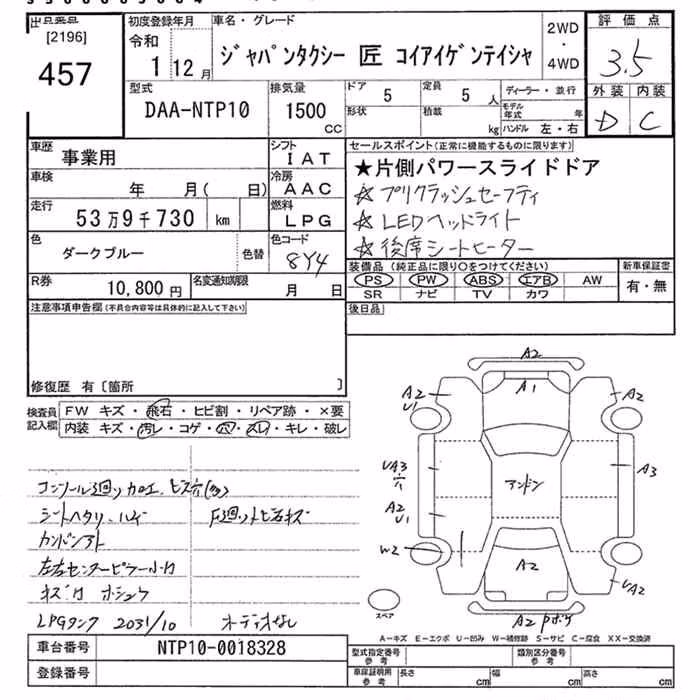 出品番号
[2196]
457
初度登録年月
令和
1年12月
車名・グレード
ジャパンタクシー 匠 コイアイゲンテイシャ
2WD
・
4WD
評価点
3.5
外装 内装
D C
型式
DAA-NTP10
排気量
1500
CC
ドア 5
形状
定員 5人
積載 kg
ディーラー・並行
モデル年式 年
ハンドル 左・右
車歴 事業用
シフト IAT
車検 年 月( 日)
冷房 AAC
走行 53万9千730 km
燃料 LPG
色 ダークブルー 色替
色コード 8Y4
R券 10,800円
名変通知期限 月 日
セールスポイント(正常に機能するものに限ります)
★片側パワースライドドア
☆プリクラッシュセーフティ
☆LEDヘッドライト
☆後席シートヒーター
装備品(純正品に限り○をつけてください)
PS PW ABS エアB AW
SR ナビ TV カワ
新車保証書
有・無
注意事項申告欄(不具合内容等は具体的に記入して下さい)
後日品
修復歴 有〔箇所 〕
検査員記入欄
FW キズ・飛石・ヒビ割・リペア跡・×要
内装 キズ・汚レ・コゲ・穴・スレ・キレ・破レ
コンソール廻り加工、ビス穴(多)
シートヘタリ、ハゲ
F廻り飛石キズ
左右センターピラー小凹
キズ凹
LPGタンク 2031/10
オーディオなし
A2
A1
A2
U1
A2
UA3
穴
A3
A2
U1
アンドン
W2
A2
UA2
スペア
A2
A-キズ E-エクボ U-凹み W-補修跡 S-サビ C-腐食 XX-交換済
車台番号 NTP10-0018328
登録番号
型式指定番号
参考
類別区分番号
参考
車庫証明用
参考
長さ cm
幅 cm
高さ cm